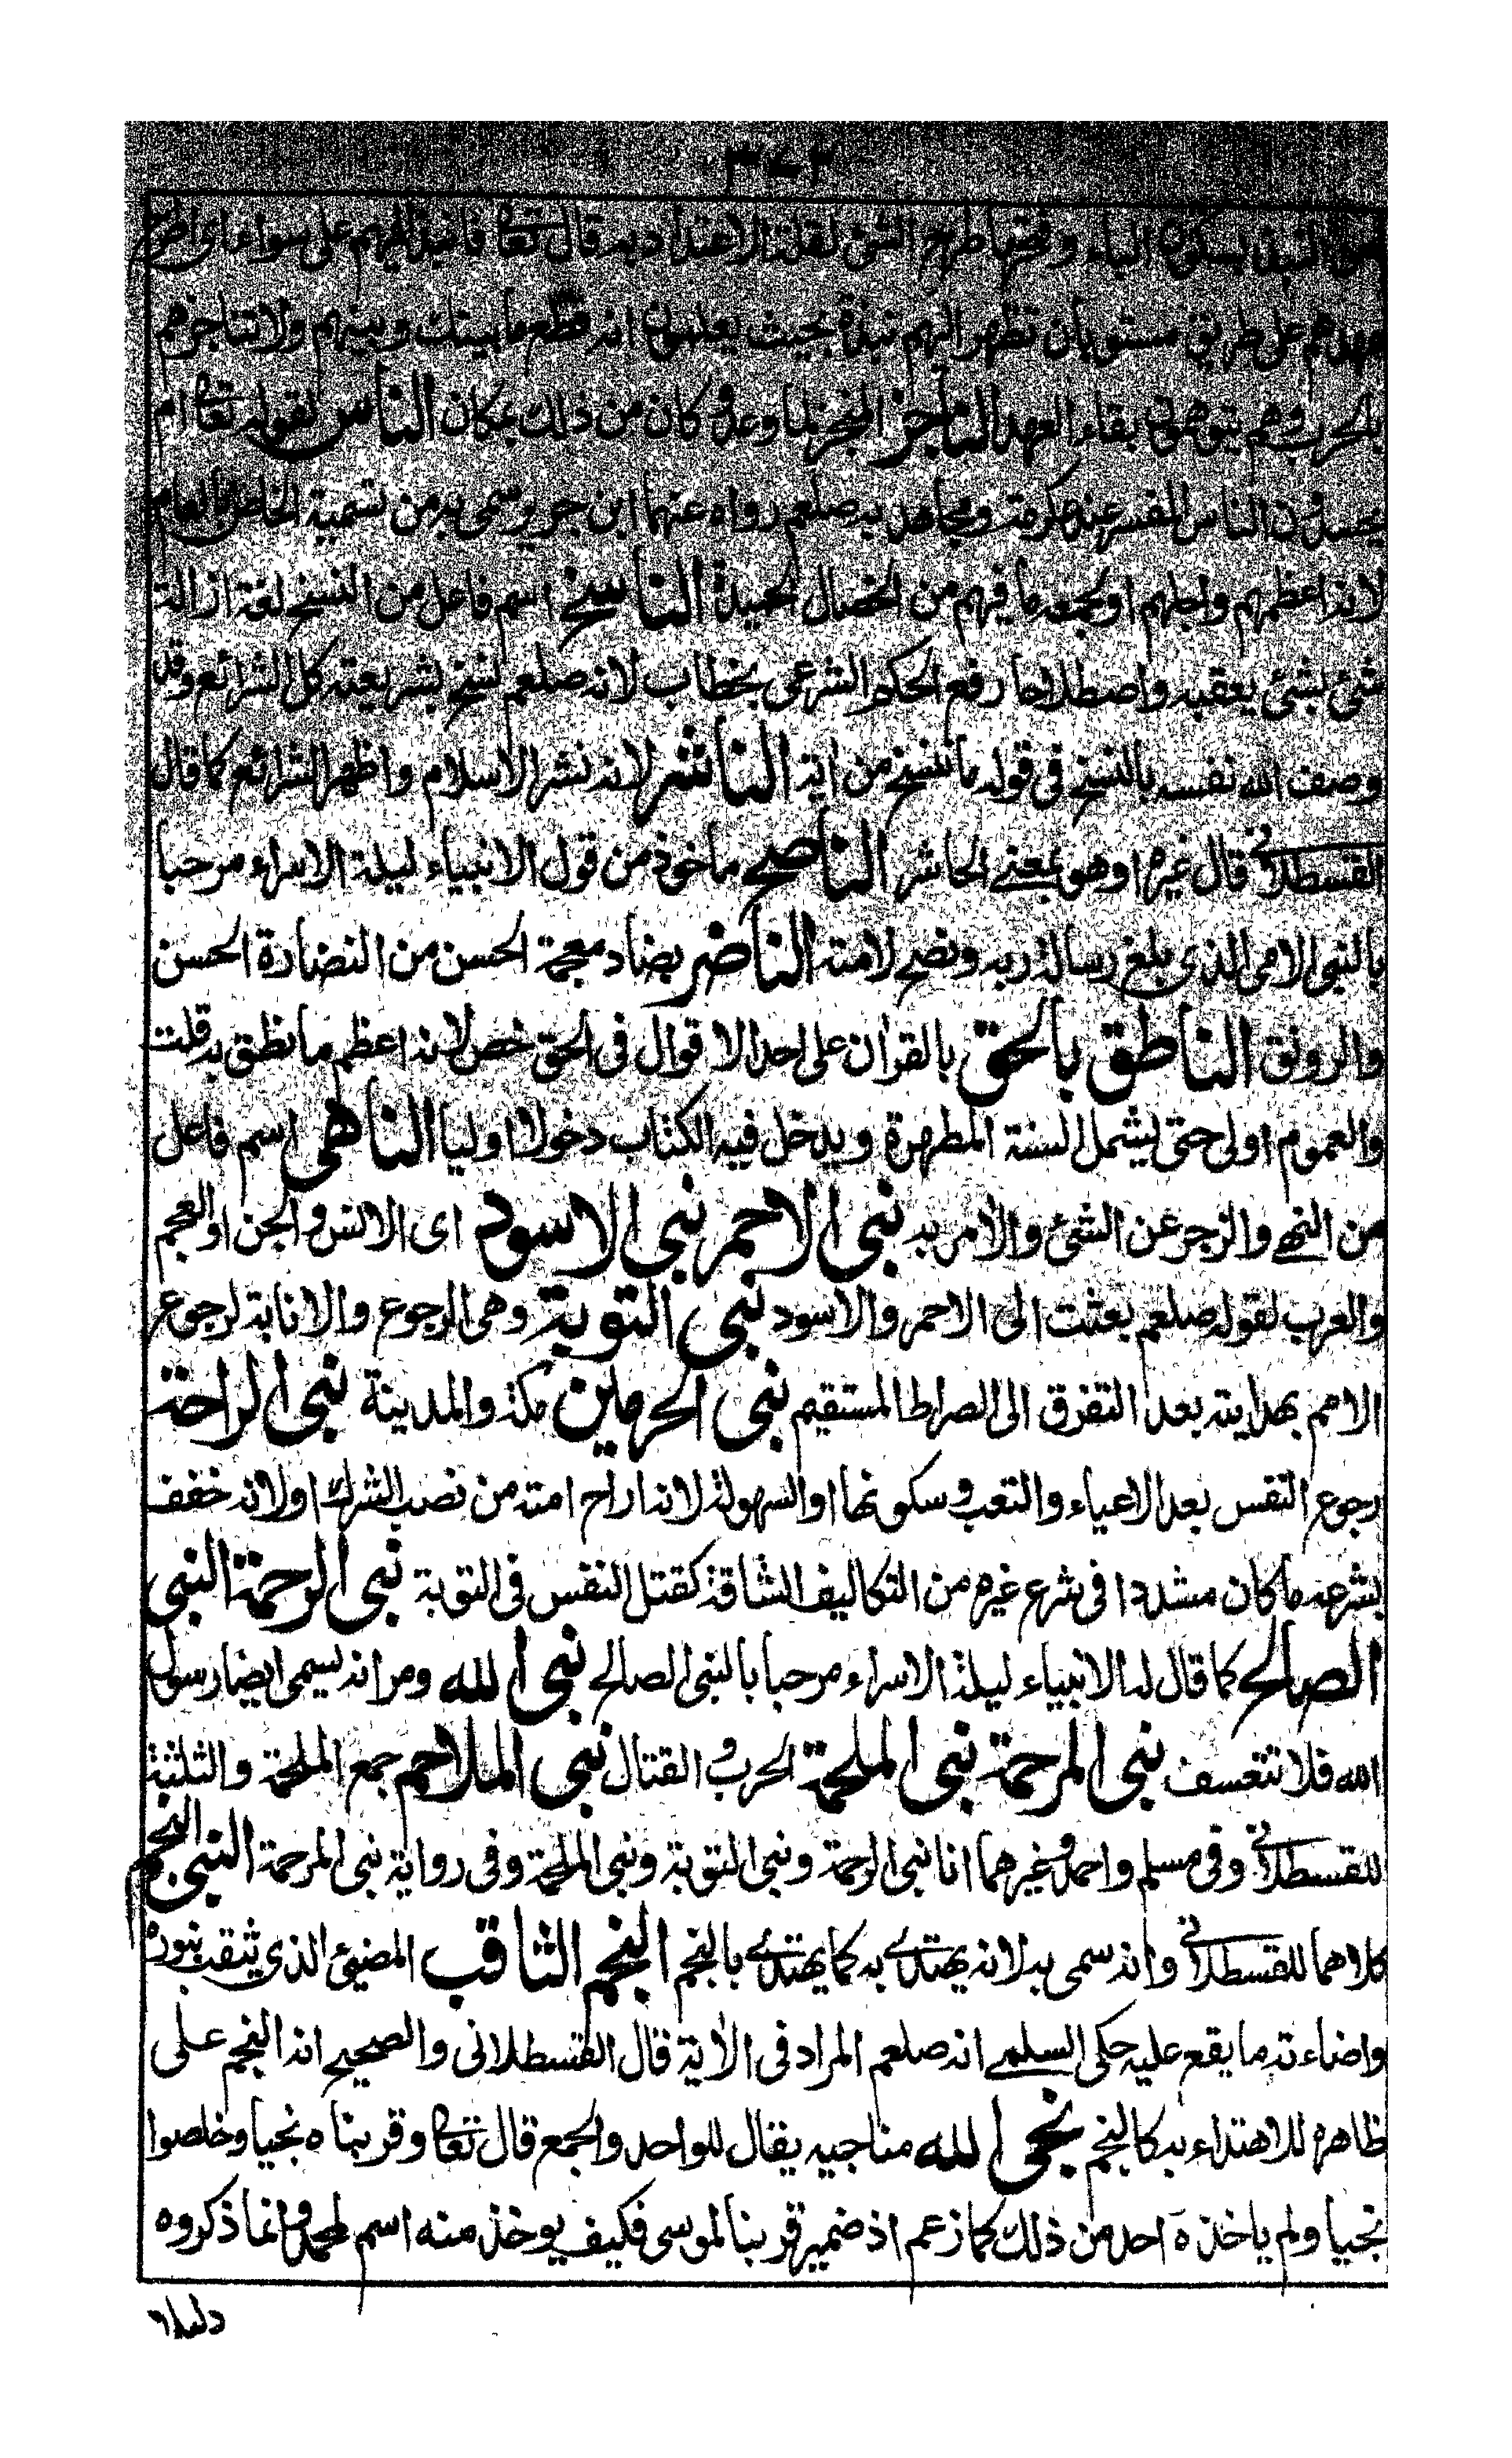 ٣٧٢
النبذ بسكون الباء وفتحها طرح الشئ لقلة الاعتداد به قال تعالى فانبذ اليهم على سواء اى اطرح
عهدهم على طريق مستو بأن تظهر اليهم نبذه بحيث يعلمون انه قطع ما بينك وبينهم ولا تناجزهم
بالحرب وهم يتوهمون بقاء العهد الناجز المنجز لما وعد وكان من ذلك بمكان الناس لقوله تعالى ام
يحسدون الناس المفسر عن عكرمة ومجاهد به صلعم رواه عنهما ابن جرير وسمى به من تسمية الخاص بالعام
لانه اعظمهم واجلهم او لجمعه ما فيهم من الخصال الحميدة الناسخ اسم فاعل من النسخ لغة ازالة
شئ بشئ يعقبه واصطلاحا رفع الحكم الشرعى بخطاب لانه صلعم نسخ بشريعته كل الشرائع وقد
وصف الله نفسه بالنسخ فى قوله ما ننسخ من اية الناشر لانه نشر الاسلام واظهر الشرائع كما قال
القسطلانى قال غيره او هو بمعنے الحاشر الناصح ماخوذ من قول الانبياء ليلة الاسراء مرحبا
بالنبى الامى الذى بلغ رسالة ربه ونصح لامته الناضر بضاد معجمة الحسن من النضارة الحسن
والرونق الناطق بالحق بالقران على احد الاقوال فى الحق خص لانه اعظم ما نطق به قلت
والعموم اولى حتى يشمل السنة المطهرة ويدخل فيه الكتاب دخولا اوليا الناهى اسم فاعل
من النهے والزجر عن الشئ والامر به نبى الاحمر نبى الاسود اى الانس والجن او العجم
والعرب لقوله صلعم بعثت الى الاحمر والاسود نبى التوبة وهى الرجوع والانابة لرجوع
الامم بهدايته بعد التفرق الى الصراط المستقيم نبى الحرمين مكة والمدينة نبى الراحة
رجوع النفس بعد الاعياء والتعب وسكونها او السهولة لانه اراح امته من نصب الشرك او لانه خفف
بشرعه ما كان مشددا فى شرع غيره من التكاليف الشاقة كقتل النفس فى التوبة نبى الرحمة النبى
الصالح كما قال له الانبياء ليلة الاسراء مرحبا بالنبى الصالح نبى الله ومر انه يسمى ايضا رسول
الله فلا تتعسف نبى المرحمة نبى الملحمة الحرب والقتال نبى الملاحم جمع الملحمة والثلثة
للقسطلانى وفى مسلم واحمد وغيرهما انا نبى الرحمة ونبى التوبة ونبى الملحمة وفى رواية نبى المرحمة النبى النجم
كلاهما للقسطلانى وانه سمى به لانه يهتدے به كما يهتدے بالنجم النجم الثاقب المضيئ الذى يثقب بنوره
واضاءته ما يقع عليه حكى السلمے انه صلعم المراد فى الاٰية قال القسطلانى والصحيح انه النجم على
ظاهره للاهتداء به كالنجم نجى الله مناجيه يقال للواحد والجمع قال تعالى وقربناه نجيا وخلصوا
نجيا ولم ياخذه احد من ذلك كما زعم اذ ضمير قربنا لموسى فكيف يوخذ منه اسم لمحمد وانما ذكروه